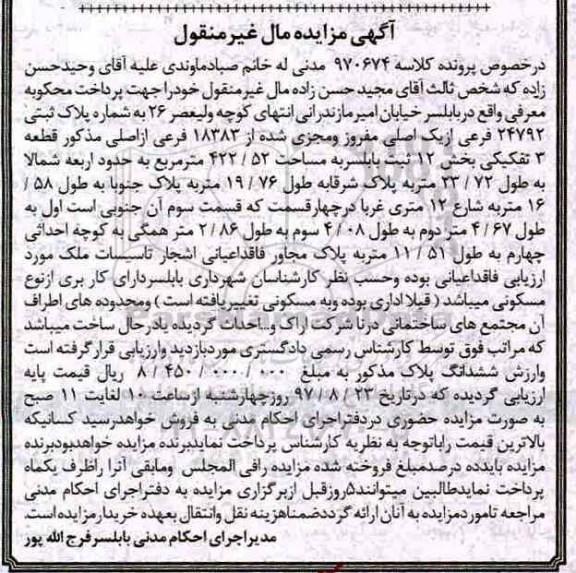 آگهی مزایده مال غیر منقول
درخصوص پرونده کلاسه ۹۷۰۶۷۴ مدنی له خانم صباد ماوندی علیه آقای وحید حسن
زاده که شخص ثالث آقای مجید حسن زاده مال غیر منقول خود را جهت پرداخت محکوبه
معرفی واقع در بابلسر خیابان امیر مازندرانی انتهای کوچه ولیعصر ۲۶ به شماره پلاک ثبتی
۲۴۷۹۲ فرعی از یک اصلی مفروز و مجزی شده از ۱۸۳۸۳ فرعی از اصلی مذکور قطعه
۳ تفکیکی بخش ۱۲ ثبت بابلسر به مساحت ۵۲ / ۴۲۲ مترمربع به حدود اربعه شمالا
به طول ۷۲ / ۳۳ متر به پلاک شرقا به طول ۷۶ / ۱۹ متر به پلاک جنوبا به طول ۵۸ /
۱۶ متر به شارع ۱۲ متری غربا در چهار قسمت که قسمت سوم آن جنوبی است اول به
طول ۶۷ / ۴ متر دوم به طول ۰۸ / ۴ سوم به طول ۸۶ / ۲ متر همگی به کوچه احداثی
چهارم به طول ۵۱ / ۱۱ متر به پلاک مجاور فاقد اعیانی اشجار تاسیسات ملک مورد
ارزیابی فاقد اعیانی بوده و حسب نظر کارشناسان شهرداری بابلسر دارای کار بری از نوع
مسکونی میباشد ( قبلا اداری بوده و به مسکونی تغییر یافته است ) و محدوده های اطراف
آن مجتمع های ساختمانی درنا شرکت اراک و...احداث گردیده یا در حال ساخت میباشد
که مراتب فوق توسط کارشناس رسمی دادگستری مورد بازدید و ارزیابی قرار گرفته است
وارزش ششدانگ پلاک مذکور به مبلغ ۰۰۰ / ۰۰۰ / ۴۵۰ / ۸ ریال قیمت پایه
ارزیابی گردیده که در تاریخ ۲۳ / ۸ / ۹۷ روز چهارشنبه از ساعت ۱۰ لغایت ۱۱ صبح
به صورت مزایده حضوری در دفتر اجرای احکام مدنی به فروش خواهد رسید کسانیکه
بالاترین قیمت را با توجه به نظریه کارشناس پرداخت نمایند برنده مزایده خواهد بود برنده
مزایده باید ده درصد مبلغ فروخته شده مزایده را فی المجلس و مابقی آنرا ظرف یکماه
پرداخت نماید طالبین میتوانند ۵ روز قبل از برگزاری مزایده به دفتر اجرای احکام مدنی
مراجعه تا مورد مزایده به آنان ارائه گردد ضمنا هزینه نقل و انتقال بعهده خریدار مزایده است.
مدیر اجرای احکام مدنی بابلسر فرج الله پور